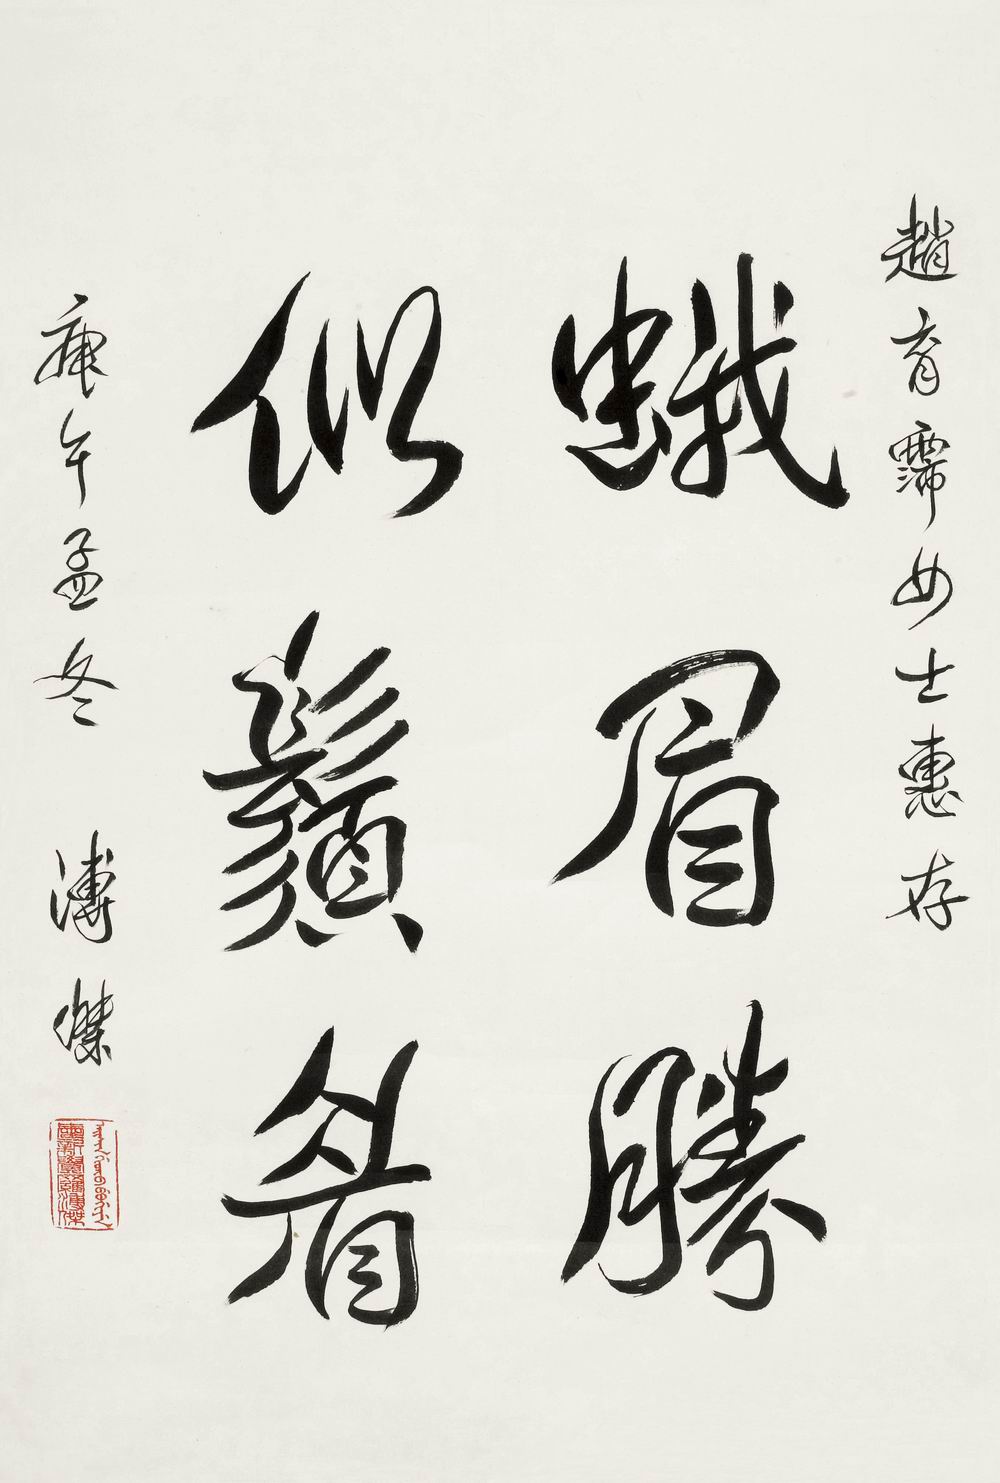 趙育霈女士惠存
蛾眉勝
似鬚眉
庚午孟冬 溥傑